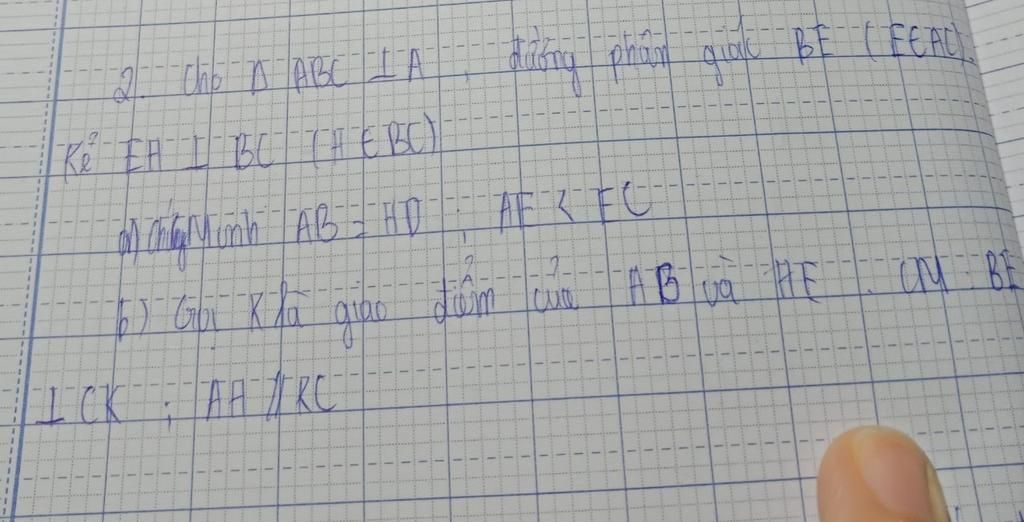 2. Cho Δ ABC ⊥ A, đường phân giác BE (E∈AC).
Kẻ EH ⊥ BC (H ∈ BC)
a) Chứng Minh AB = HD ; AE < EC
b) Gọi K là giao điểm của AB và HE. CM : BE
⊥ CK ; AH // KC